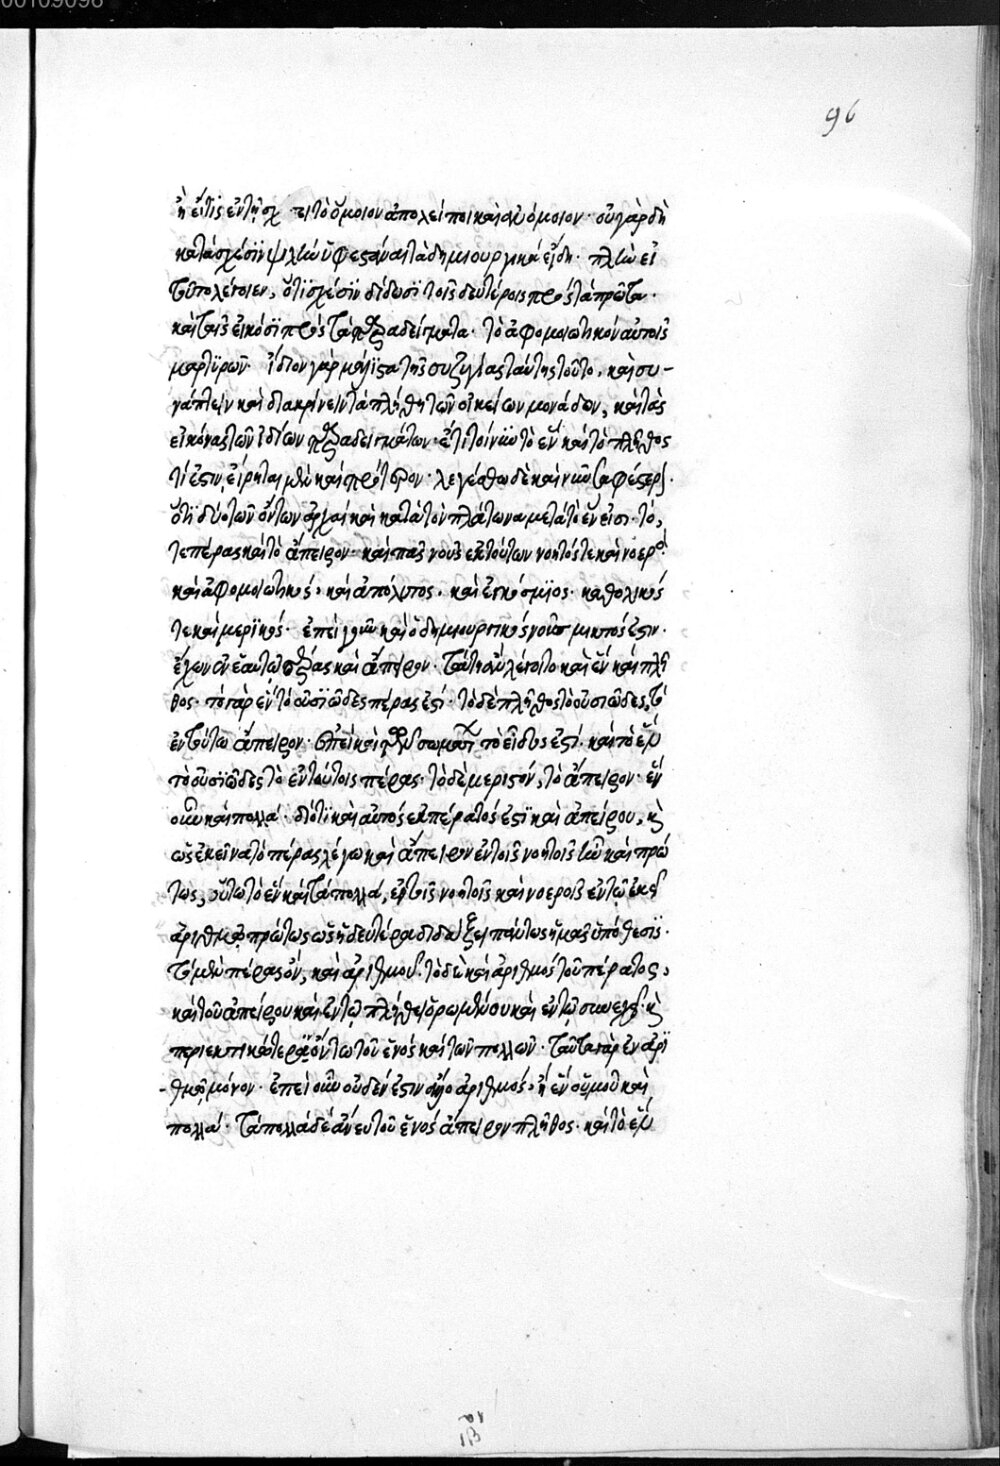 00109098
96
ἢ εἴ τις ἐν τῇ σχ τει τὸ ὅμοιον ἀπολείποι καὶ ἀνόμοιον· οὐ γὰρ δὴ
κατὰ σχέσιν ψιλὴν ὑφεστάναι τὰ δημιουργικὰ εἴδη· πλὴν εἰ
τοῦτο λέγοιεν, ὅτι σχέσιν δίδωσι τοῖς δευτέροις πρὸς τὰ πρῶτα·
καὶ ταῖς εἰκόσι πρὸς τὰ παραδείγματα· τὸ ἀφομοιωτικὸν αὐτοῖς
μαρτυρῶν· ἴδιον γὰρ μάλιστα τῆς συζυγίας ταύτης τοῦτο, καὶ συ-
νάπτειν καὶ διακρίνειν τὰ πλήθη τῶν οἰκείων μονάδων, καὶ τὰς
εἰκόνας τῶν ἰδίων παραδειγμάτων· ἔτι τοίνυν τὸ ἓν καὶ τὸ πλῆθος
τί ἐστιν, εἴρηται μὲν καὶ πρότερον· λεγέσθω δὲ καὶ νῦν σαφέστερον·
ὅτι δύο τῶν ὄντων ἀρχαὶ καὶ κατὰ τὸν πλάτωνα μετὰ τὸ ἕν εἰσι· τό,
τε πέρας καὶ τὸ ἄπειρον· καὶ πᾶς νοῦς ἐκ τούτων νοητός τε καὶ νοερὸς
καὶ ἀφομοιωτικός· καὶ ἀπόλυτος· καὶ ἐγκόσμιος· καθολικός
τε καὶ μερικός· ἐπεὶ οὖν καὶ ὁ δημιουργικὸς νοῦς μικτός ἐστιν·
ἔχων ἐν ἑαυτῷ πέρας καὶ ἄπειρον· ταύτῃ ἂν λέγοιτο καὶ ἓν καὶ πλῆ
θος· τὸ γὰρ ἓν τὸ οὐσιῶδες πέρας ἐστί· τὸ δὲ πλῆθος τὸ οὐσιῶδες, τὸ
ἐν τούτῳ ἄπειρον· ἐπεὶ καὶ τῶν σωμάτων τὸ εἶδος ἐστί· καὶ τὸ ἓν
τὸ οὐσιῶδες τὸ ἐν τούτοις πέρας· τὸ δὲ μεριστόν, τὸ ἄπειρον· ἓν
οὖν καὶ πολλά· διότι καὶ αὐτὸς ἐκ πέρατός ἐστι καὶ ἀπείρου, καὶ
ὡς ἐκεῖνα τὸ πέρας λέγω καὶ ἄπειρον ἐν τοῖς νοητοῖς ἦν καὶ πρώ
τως, οὕτω τὸ ἓν καὶ τὰ πολλά, ἐν τοῖς νοητοῖς καὶ νοεροῖς ἐν τῷ ἐκεῖ
ἀριθμῷ πρώτως ὡς ἡ δευτέρα διδάξει πάντως ἡμᾶς ὑπόθεσις·
τὸ μὲν πέρας ὄν, καὶ ἀριθμοῦ· τὸ δὲ καὶ ἀριθμὸς τοῦ πέρατος,
καὶ τοῦ ἀπείρου καὶ ἐν τῷ πλήθει ὁρωμένου καὶ ἐν τῷ συνεχεῖ· καὶ
περιεκτικώτερα ὄντα τοῦ ἑνὸς καὶ τῶν πολλῶν· ταῦτα γὰρ ἐν ἀρι
-θμῷ μόνον· ἐπεὶ οὖν οὐδέν ἐστιν ἄλλο ἀριθμός, ἢ ἓν ὁμοῦ καὶ
πολλά· τὰ πολλὰ δὲ ἄνευ τοῦ ἑνὸς ἄπειρον πλῆθος· καὶ τὸ ἓν